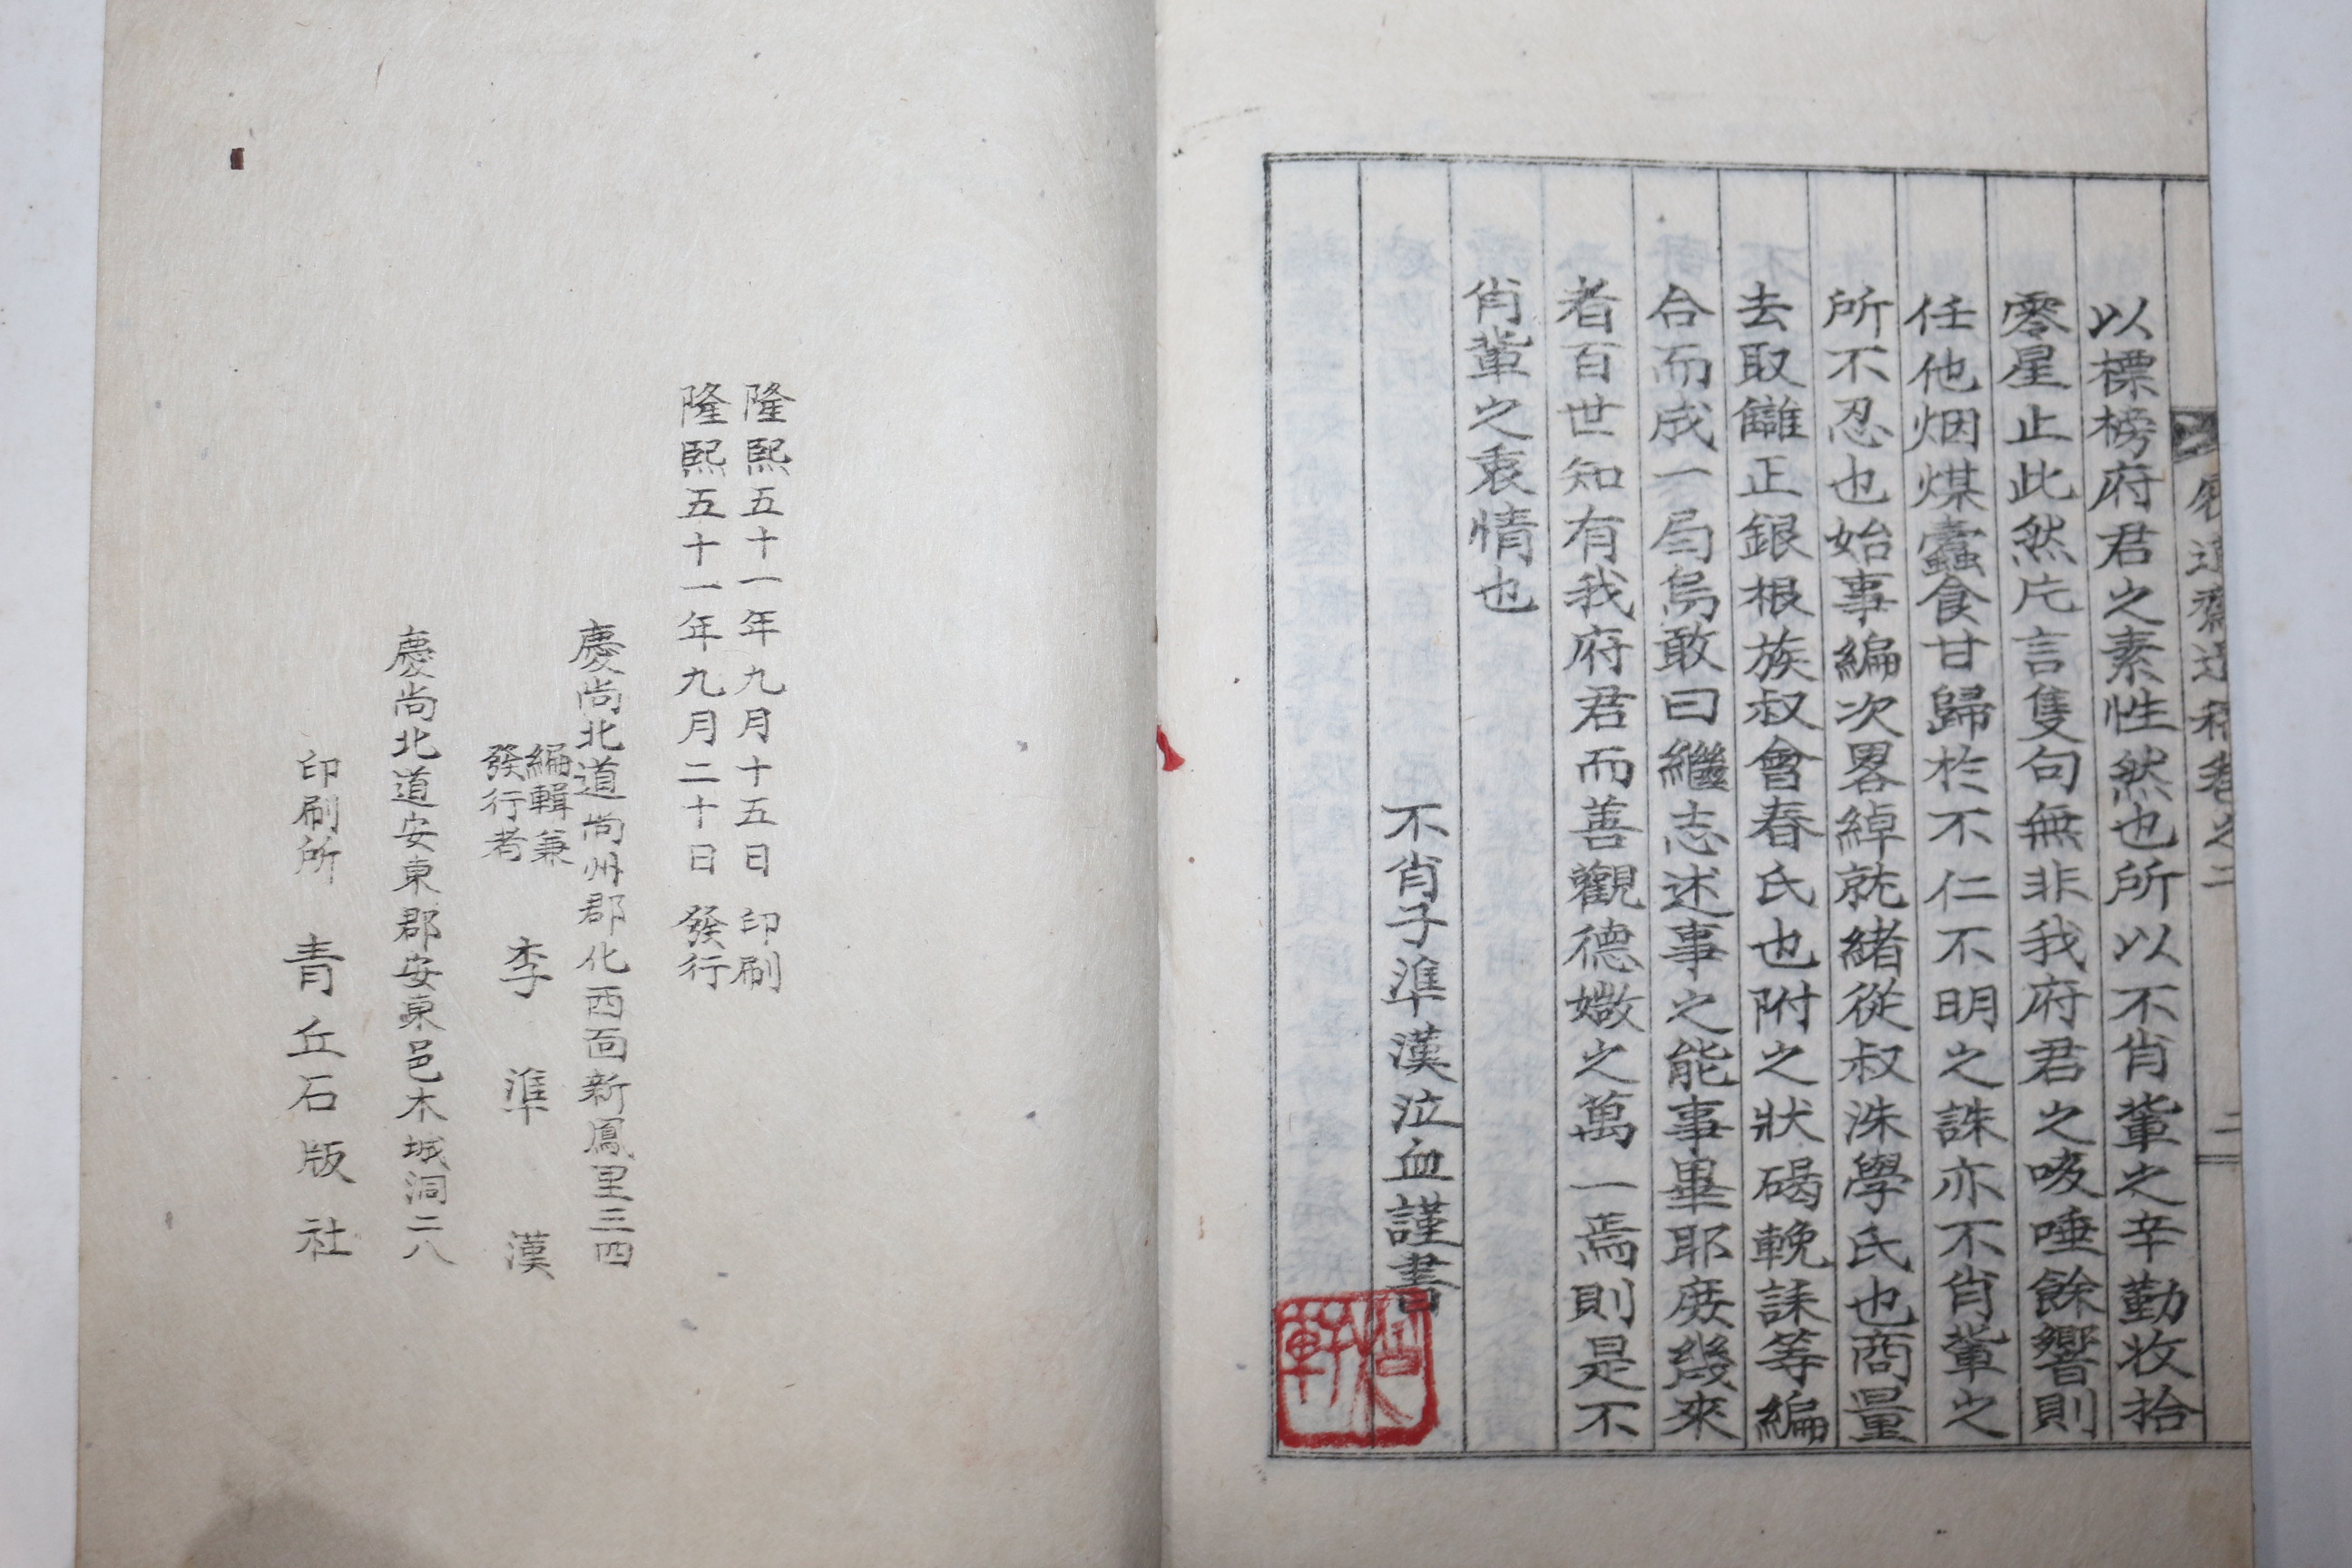 以標榜府君之素性然也所以不肖輩之辛勤收拾
零星止此然片言隻句無非我府君之咳唾餘響則
任他烟煤蠹食甘歸於不仁不明之誅亦不肖輩之
所不忍也始事編次畧綽就緒從叔洙學氏也商量
去取讎正銀根族叔會春氏也附之狀碣輓誄等編
合而成一局烏敢曰繼志述事之能事畢耶庶幾來
者百世知有我府君而善觀德媺之萬一焉則是不
肖輩之衷情也
不肖子準漢泣血謹書
隆熙五十一年九月十五日 印刷
隆熙五十一年九月二十日 發行
慶尚北道尚州郡化西面新鳳里三四
編輯兼
發行者 李準漢
慶尚北道安東郡安東邑木城洞二八
印刷所 青丘石版社